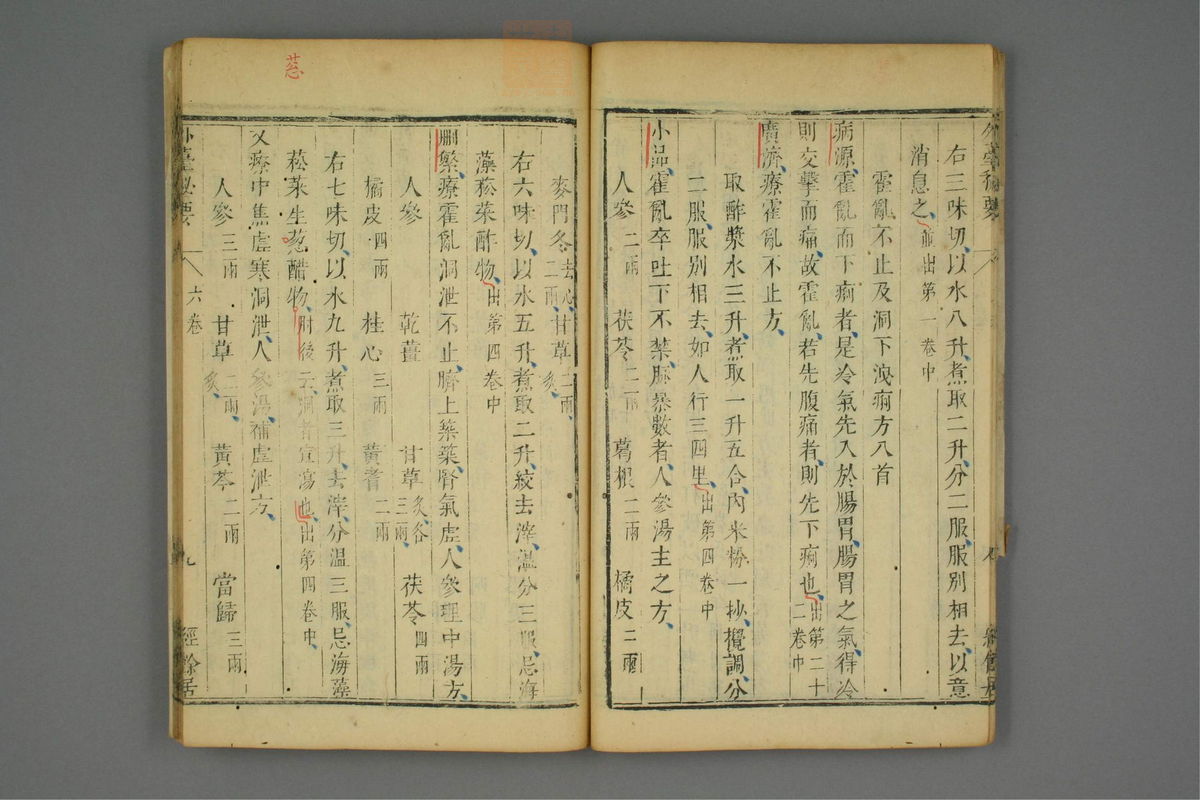 右三味切以水八升煮取二升分二服服別相去以意
消息之並出第一卷中
霍亂不止及洞下洩痢方八首
病源霍亂而下痢者是冷氣先入於腸胃腸胃之氣得冷
則交擊而痛故霍亂若先腹痛者則先下痢也出第二十二卷中
廣濟療霍亂不止方
取酢漿水三升煮取一升五合內米粉一抄攪調分
二服服別相去如人行三四里出第四卷中
小品霍亂卒吐下不禁脈暴數者人參湯主之方
人參二兩 茯苓二兩 葛根二兩 橘皮二兩
麥門冬去心二兩 甘草二兩炙
右六味切以水五升煮取二升絞去滓溫分三服忌海
藻菘菜酢物出第四卷中
刪繁療霍亂洞泄不止臍上築築腎氣虛人參理中湯方
人參 乾薑 甘草炙各三兩 茯苓四兩
橘皮四兩 桂心三兩 黃耆二兩
右七味切以水九升煮取三升去滓分溫三服忌海藻
菘菜生葱醋物肘後云洞者宜瀉也出第四卷中
又療中焦虛寒洞泄人參湯補虛泄方
人參三兩 甘草二兩炙 黃芩二兩 當歸三兩
外臺秘要 六卷 九 經餘居
葱